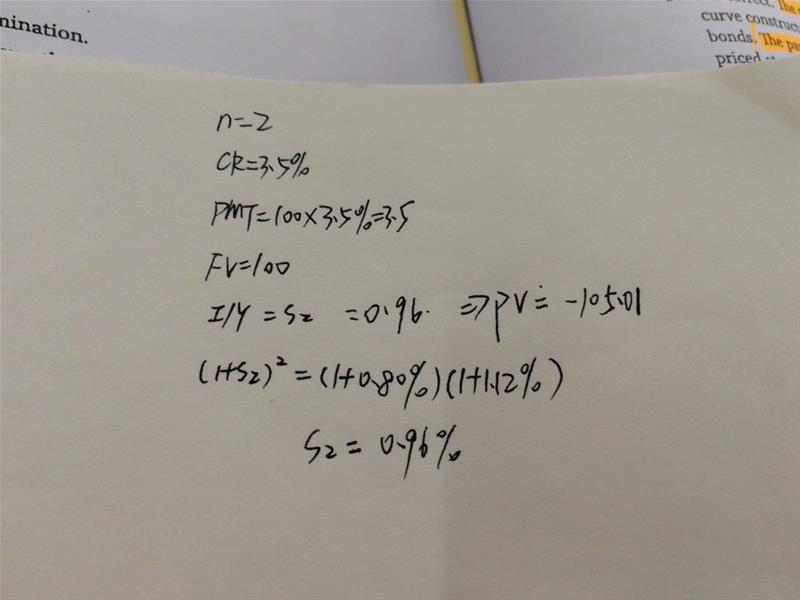 nination.
curve construct
bonds. The pa
priced
n=2
CR=3.5%
PMT=100×3.5%=3.5
FV=100
I/Y=S2 =0.96. ⇒PV= -105.01
(1+S2)²=(1+0.80%)(1+1.12%)
S2=0.96%